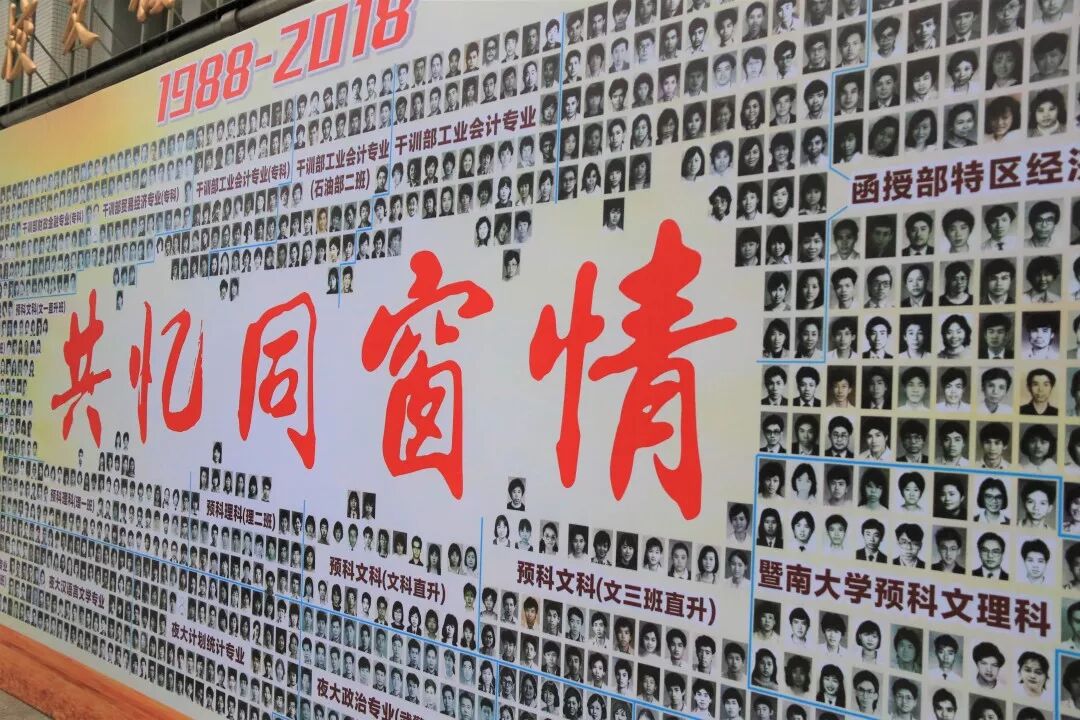 1988-2018
干训部工业会计专业
干训部工业会计专业
(石油部二班)
干训部工业会计专业(专科)
干训部贸易经济专业(专科)
干训部财政金融专业(专科)
函授部特区经济
预科文科(文一直升班)
共忆同窗情
预科理科(理一班)
预科理科(理二班)
预科文科(文科直升)
预科文科(文三班直升)
暨南大学预科文理科
夜大汉语言文学专业
夜大计划统计专业
夜大政治专业